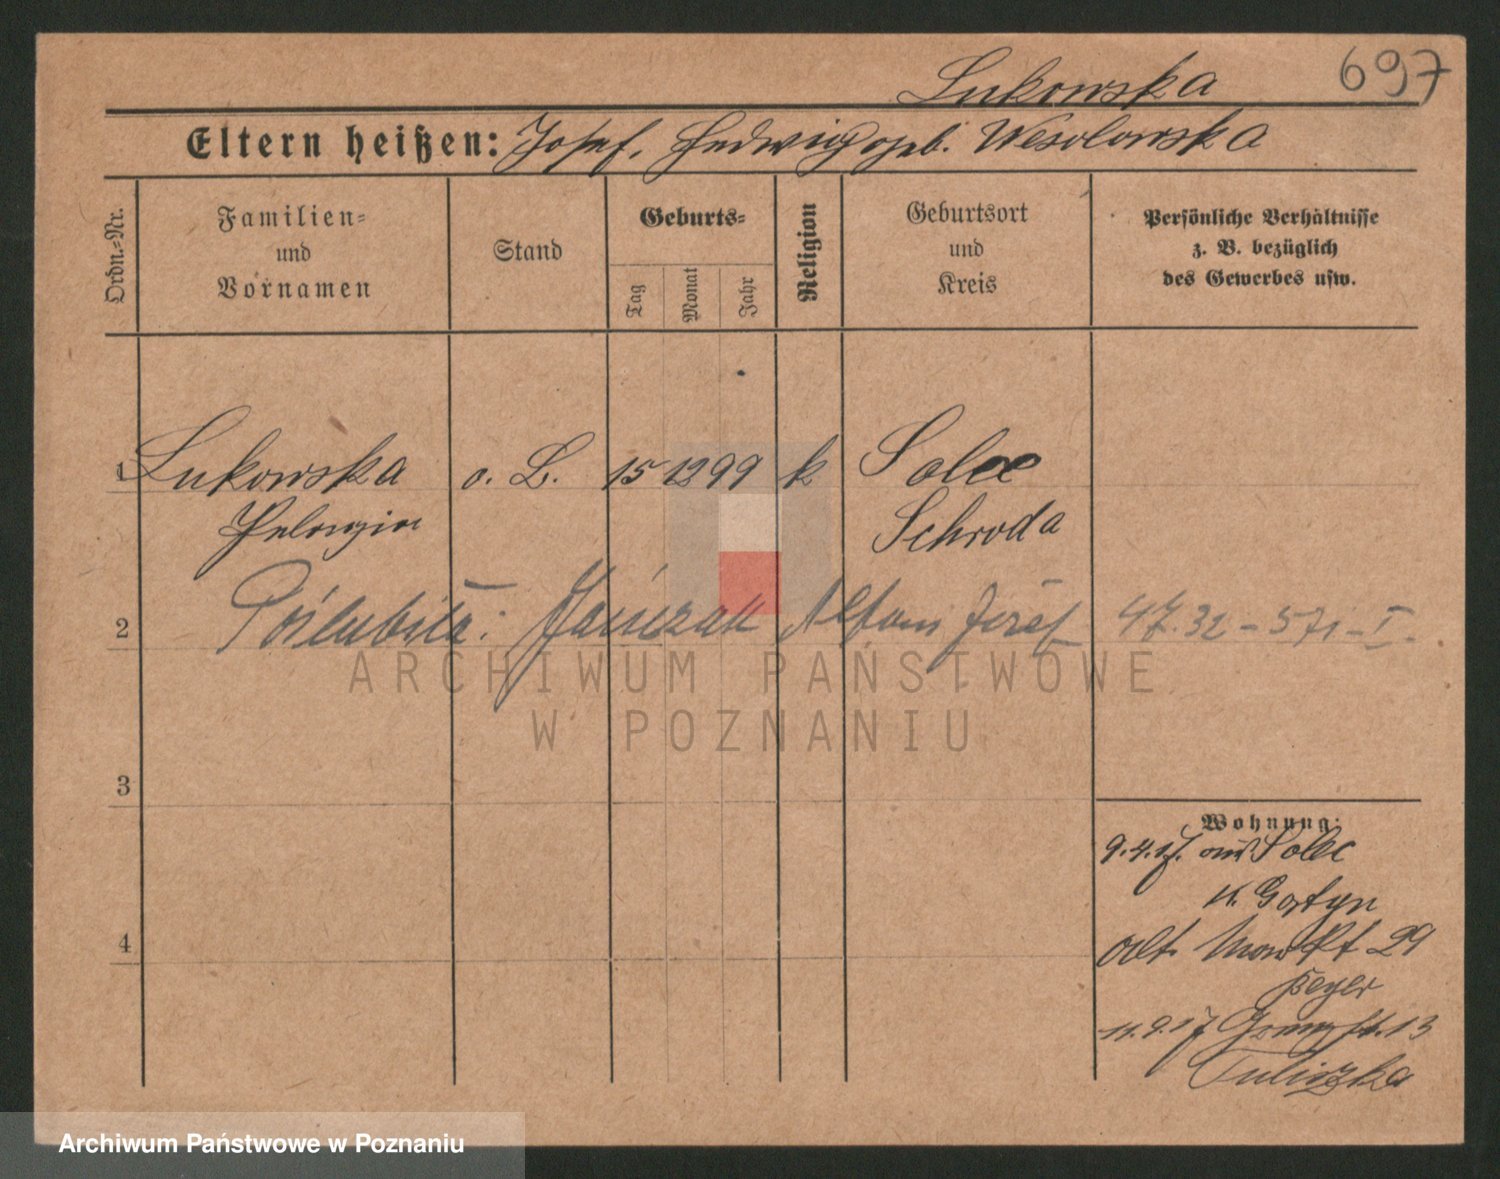 Lukowska 697
Eltern heißen: Josef, Hedwig geb. Wesolowska
Ordn.-Nr.
Familien-
und
Vornamen
Stand
Geburts-
Tag
Monat
Jahr
Religion
Geburtsort
und
Kreis
Persönliche Verhältnisse
z. B. bezüglich
des Gewerbes usw.
1 Lukowska o. B. 15 12 99 k Solec
Pelagia Schroda
2 Poślubiła: Jańczak Alfons Józef 47.32-571-I.
ARCHIWUM PAŃSTWOWE
W POZNANIU
3
Wohnung:
9.4.17. aus Solec
n. Gostyn
4
Alt. Markt 29
Beyer
11.9.17 13
Tuliszka
Archiwum Państwowe w Poznaniu